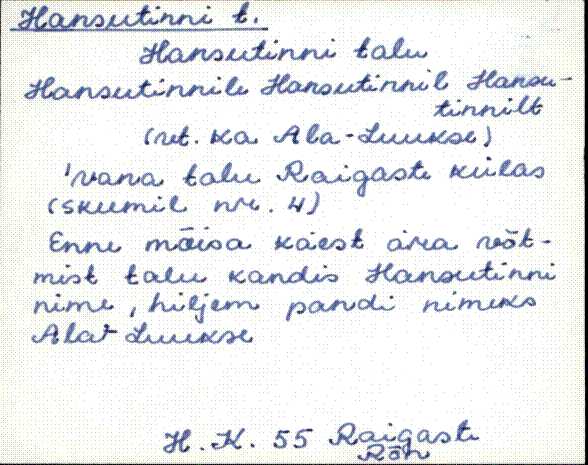 Hansutinni t.
Hansutinni talu
Hansutinnile Hansutinnil Hansu-
tinnilt
(vt. ka Ala-Luukse)
'vana talu Raigaste külas
(skeemil nr. 4)
Enne mõisa käest ära võt-
mist talu kandis Hansutinni
nime, hiljem pandi nimeks
Ala-Luukse
H. K. 55 Raigaste
Rõn